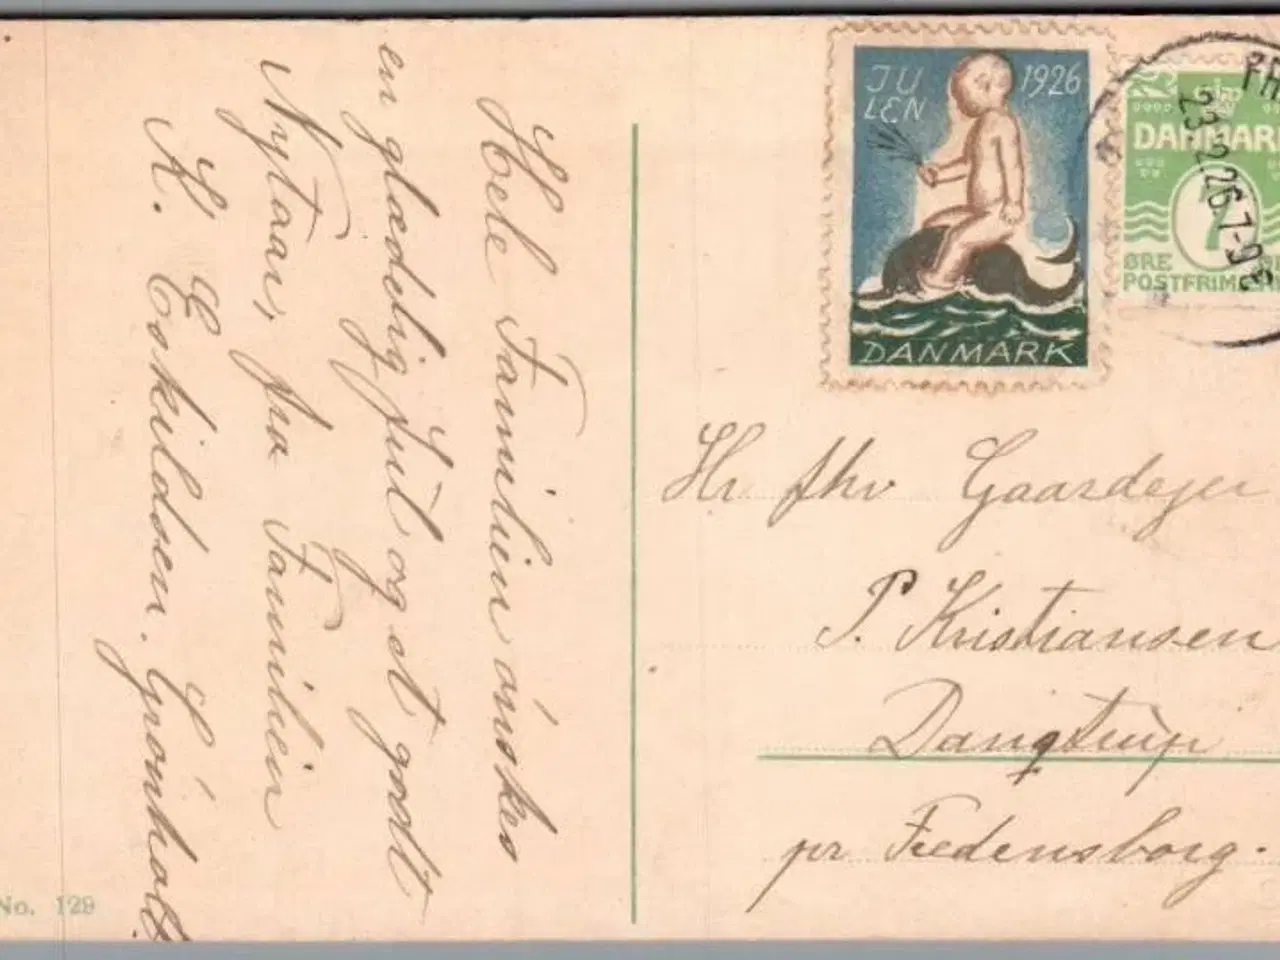 Hele Familien ønskes
en glædelig Jul og et godt
Nytaar, fra Familien
K. Eskildsen. Grønholt
No. 129
JU
LEN
1926
DANMARK
DANMARK
7
ØRE
POSTFRIM
FR
23.12.26. 7-9
Hr fhv Gaardejer
P. Kristiansen
Dangstrup
pr Fredensborg.